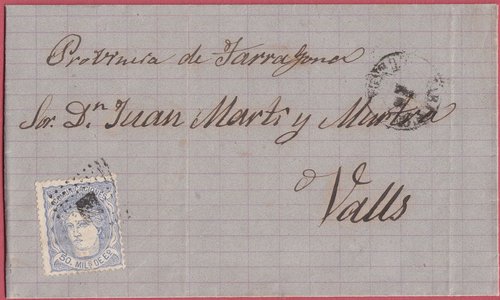 Provincia de Tarragona
Sor. Dn. Juan Martí y Muntra
Valls
50 MILS DE Eo